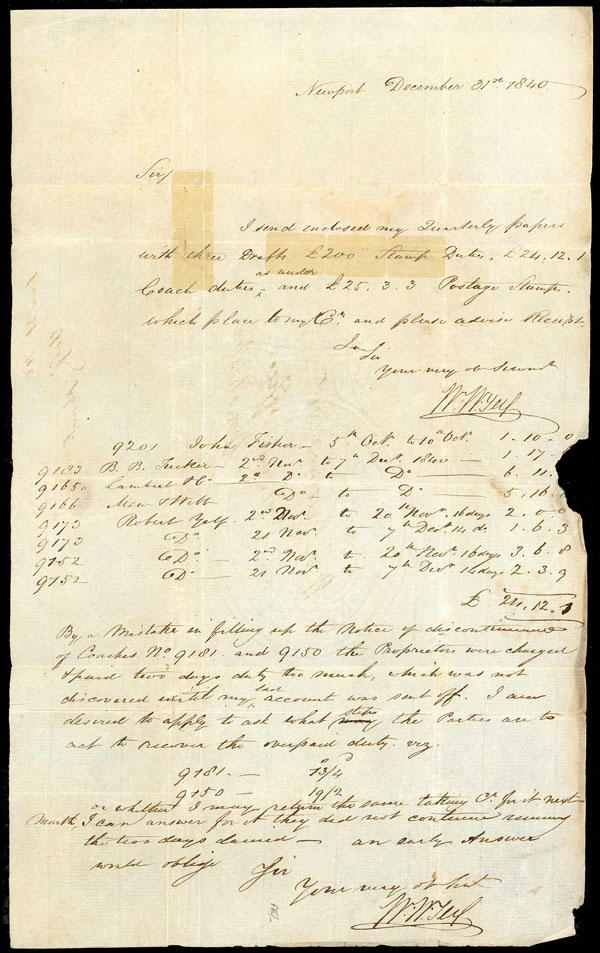 Newport December 31st 1840
Sir/
I send enclosed my Quarterly papers
with three Drafts £200 Stamp Duties, £24.12.1
Coach duties as under and £25.3.3 Postage Stamps,
which place to my Cr. and please advise Receipt
I am
Sir
Your very ob Servant
9201 John Fisher — 5th Octr. to 10th Octr. 1-10-0
9183 B. B. Tucker — 2nd Novr. to 7th Decr. 1840 — 1-17-
9165. Lambert & Co — 2d Do — to Do — 6.11.
9166 & Witt Do — to D — 5.16.
9173 Robert Yelf. 2nd Novr. to 20th Novr. 16 days 2.0.0
9173 Do — 21 Novr. to 7th Decr. 14 d. 1.6.3
9152 Do — 2nd Novr. to 20th Novr. 16 days 3.6.8
9152 Do — 21 Novr. to 7th Decr. 14 days 2.3.9
£ 24.12.1
By a Mistake in filling up the Notice of discontinuance
of Coaches No 9181 and 9150 the Proprietors were charged
& paid two days duty too much, which was not
discovered until my last account was sent off. I am
desired to apply to ask what steps the Parties are to
act to recover the overpaid duty. viz.
s d
9181. — 13/4
9150 — 19/2
or whether I may return the same taking Cr. for it next
Month, I can answer for it they did not continue running
the two days — an early Answer
would oblige Sir
Your very ob St